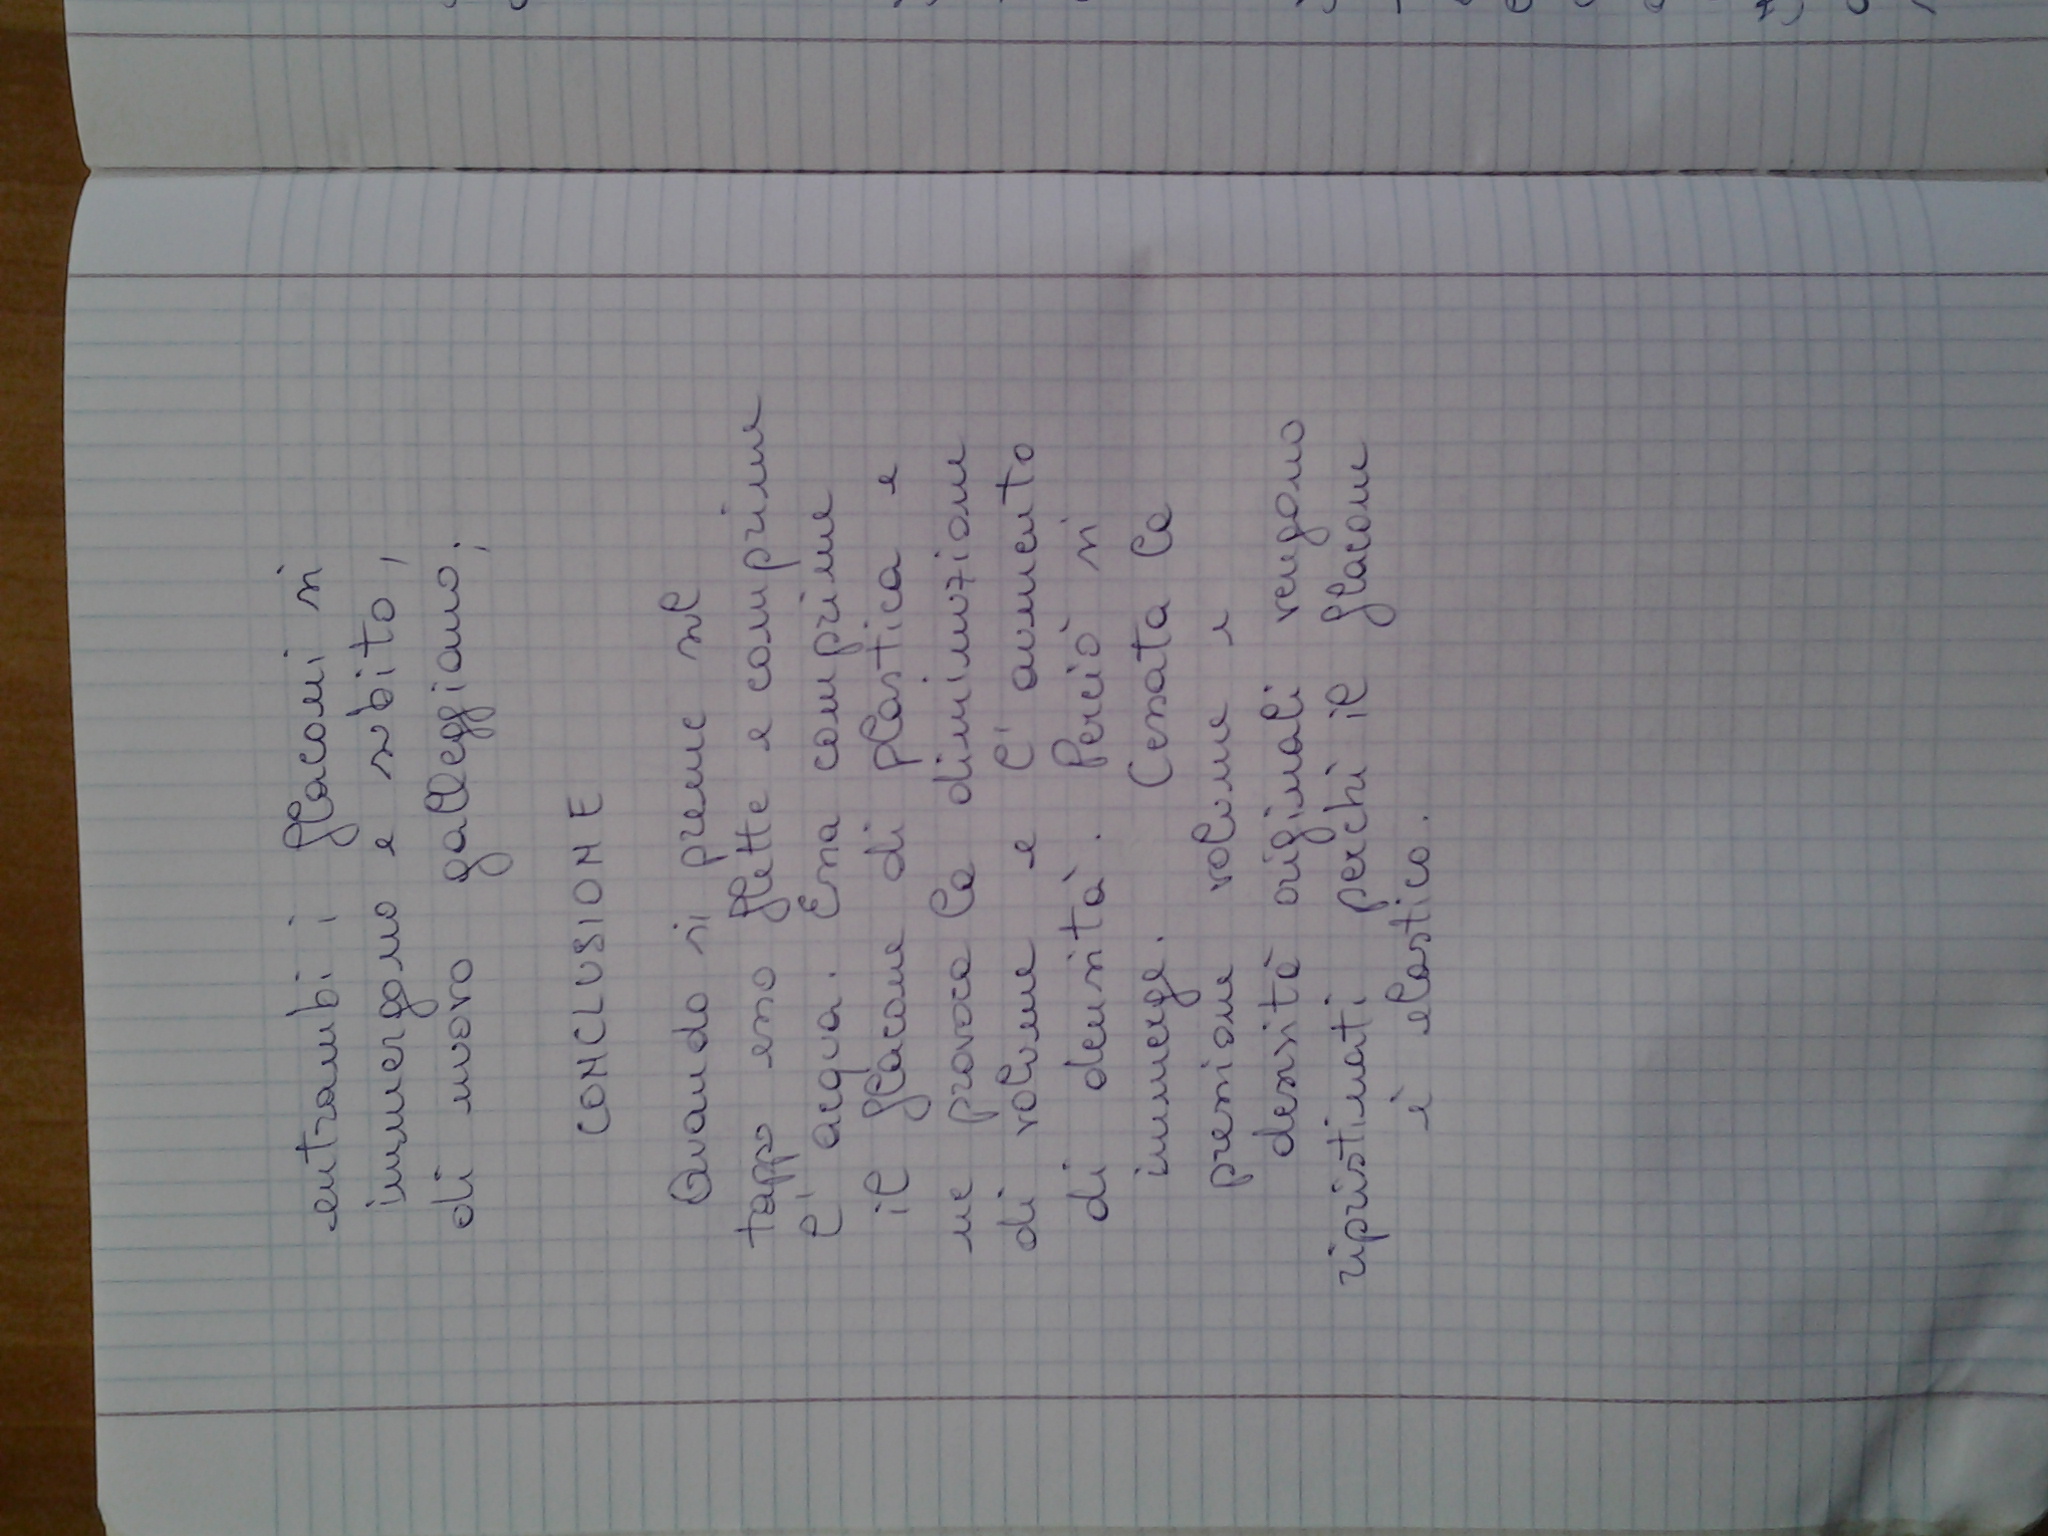 entrambi i flaconi si
immergono e subito,
di nuovo galleggiano;
CONCLUSIONE
Quando si preme sul
tappo esso flette e comprime
l'acqua. Essa comprime
il flacone di plastica e
ne provoca la diminuzione
di volume e l'aumento
di densità. Perciò si
immerge. Cessata la
pressione volume e
densità originali vengono
ripristinati perchè il flacone
è elastico.